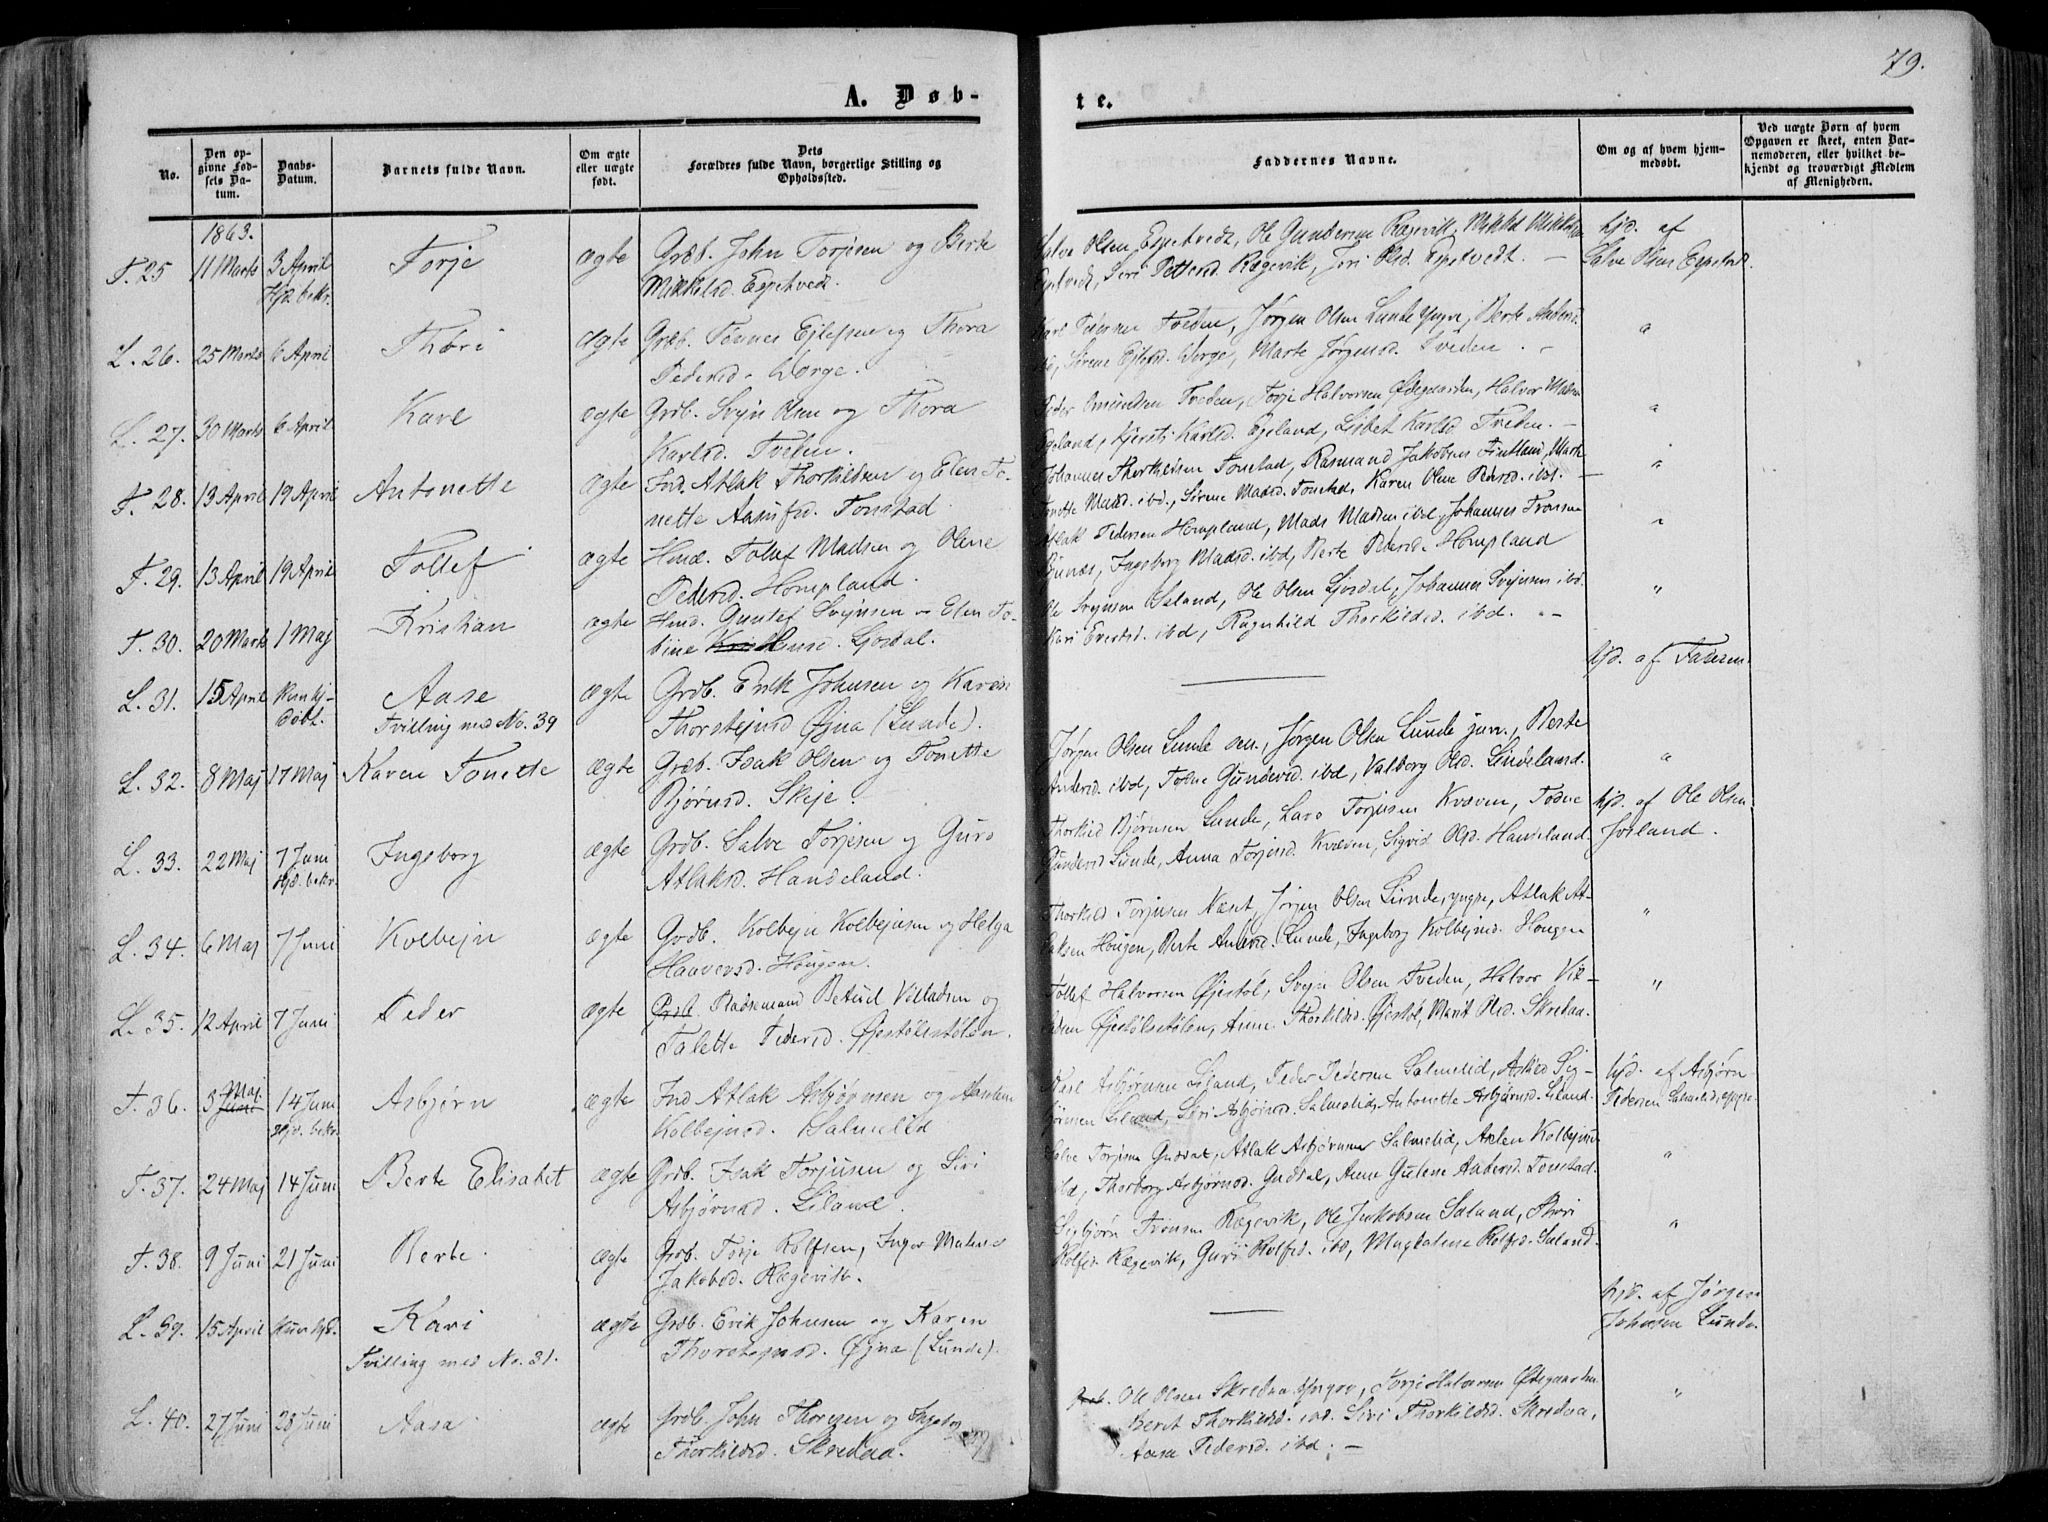 79.
A. Døb-
te.
No.
Den op-
givne Fød-
sels Da-
tum.
Daabs-
Datum.
Barnets fulde Navn.
Om ægte
eller uægte
født.
Dets
Forældres fulde Navn, borgerlige Stilling og
Opholdssted.
Faddernes Navne.
Om og af hvem hjem-
medøbt.
Ved uægte Børn af hvem
Opgaven er skeet, enten Bar-
nemoderen, eller hvilket be-
kjendt og troværdigt Medlem
af Menigheden.
1863.
T. 25 11 Marts 3 April Torje ægte Grdb. John Torjesen og Berte
Hjd. bekr. Mikkelsd. Espetvedt.
Salve Olsen Espetvedt, Ole Gundersen Rægevik, Mikkel Mikkelsen
Espetvedt, Siri Pettersd. Rægevik, Jori Olsd. Espetvedt. —
hjd. af
Salve Olsen Espetvedt
L. 26. 25 Marts 6 April Thori ægte Grdb. Tønnes Ejlefsen og Thora
Pedersd. Worge.
Karl Pedersen Tveden, Jørgen Olsen Lunde yngre, Berte Andersd.
ibd, Sirene Ejlefsd. Worge, Marte Jørgensd. Tveden. —
"
L. 27. 30 Marts 6 April Karl ægte Grdb. Svejn Olsen og Thora
Karlsd. Tveden.
Peder Omundsen Tveden, Torje Halvorsen Ødegaarden, Halvor
Egeland, Kjersti Karlsd. Egeland, Lisbet Karlsd. Tveden. —
"
T. 28. 13 April 19 April Antonette ægte Ind. Atlak Thorkildsen og Elen To-
nette Aanensd. Tonstad.
Johannes Thorkildsen Tonstad, Rasmund Jakobsen Fintland, Marte
Tonette Madsd. ibd., Sirene Madsd. Tonstad, Karen Oline Pedersd. ibd. —
"
T. 29. 13 April 19 April Tollef ægte Hmd. Tollef Madsen og Oline
Pedersd. Hompland.
Atlak Pedersen Hompland, Mads Madsen ibd, Johannes Tronsen
Bjunes, Ingeborg Madsd. ibd, Berte Pedersd. Hompland
"
T. 30. 20 Marts 1 Maj Kristian ægte Hmd. Guntef Svejnsen – Elen To-
bine Gjosdal.
Ole Svejnsen Seland, Ole Olsen Gjosdal, Johannes Svejnsen ibd.
Kari Evertsd. ibd, Ragnhild Thorkildsd. ibd. —
"
L. 31. 15 April Kun hj- Aase ægte Grdb. Erik Johnsen og Karen
døbt. Tvilling med No. 39 Thorstejnsd Øjna (Lunde).
hjd. af Faderen.
L. 32. 8 Maj 17 Maj Karen Tonette ægte Grdb. Isak Olsen og Tonette
Bjørnsd. Skeje.
Jørgen Olsen Lunde sen., Jørgen Olsen Lunde jun., Berte
Andersd. ibd, Tobine Gundersd. ibd, Valborg Olsd. Lindeland.
"
L. 33. 22 Maj 7 Juni Ingeborg ægte Grdb. Salve Torjesen og Guro
Hjd. bekr. Atlaksd. Handeland.
Thorkild Bjørnsen Lunde, Lars Torjusen Kvæven, Tobine
Gundersd Lunde, Anna Torjusd. Kvæven, Sigrid Olsd. Handeland
hjd. af Ole Olsen
Josland.
L. 34. 6 Maj 7 Juni Kolbejn ægte Grdb. Kolbejn Kolbejnsen og Helga
Haaversd. Hougen.
Thorkild Torjusen Næset, Jørgen Olsen Lunde, yngre, Atlak At-
laksen Hougen, Berte Andersd. Lunde, Ingeborg Kolbejnsd. Hougen
"
L. 35. 12 April 7 Juni Peder ægte Grdb. Pladsemand Betuel Villadsen og
Talette Pedersd. Øjestølestølen.
Tollef Halvorsen Øjestøl, Svejn Olsen Tveden, Halvor Vil-
ladsen Øjestølestølen, Anne Thorkildsd. Øjestøl, Marit Olsd. Skredaa.
"
T. 36. 3 Juni Maj 14 Juni Asbjørn ægte Ind Atlak Asbjørnsen og
Hjd. bekr. Kolbejnsd. Salmelid
Karl Asbjørnsen Liland, Peder Pedersen Salmelid, Asbjørnsen Liland, Siri Asbjørnsd. Salmelid, Antonette Asbjørnsd. Liland.
hjd. af Asbjørn
Pedersen Salmelid, yngre
T. 37. 24 Maj 14 Juni Berte Elisabet ægte Grdb. Isak Torjusen og Siri
Asbjørnsd. Liland.
Salve Torjusen Gusdal, Atlak Asbjørnsen Salmelid, Kolbejnsd.
ibd, Thorborg Asbjørnsd. Gusdal, Anne Guline Andersd. Tonstad.
"
T. 38. 9 Juni 21 Juni Berte. ægte Grdb. Torje Rolfsen, Inger Malene
Jakobsd. Rægevik.
Sigbjørn Tronsen Rægevik, Ole Jakobsen Seland, Thori
Rolfsd. Rægevik, Guri Rolfsd. ibd, Magdalene Rolfsd. Seland.
"
L. 39. 15 April Kun hjd. Kari ægte Grdb. Erik Johnsen og Karen
Tvilling med No. 31. Thorstejnsd. Øjna (Lunde).
hjd. af Jørgen
Johnsen Lunde.
L. 40. 27 Juni 28 Juni Aasa ægte Grdb. John Thoresen og Ingeborg
Thorkildsd. Skredaa.
Grdb. Ole Olsen Skredaa yngre, Torje Halvorsen Ødegaarden
Beret Thorkildsd. ibd. Siri Thorkildsd. Skredaa,
Aasa Pedersd. ibd. —
"